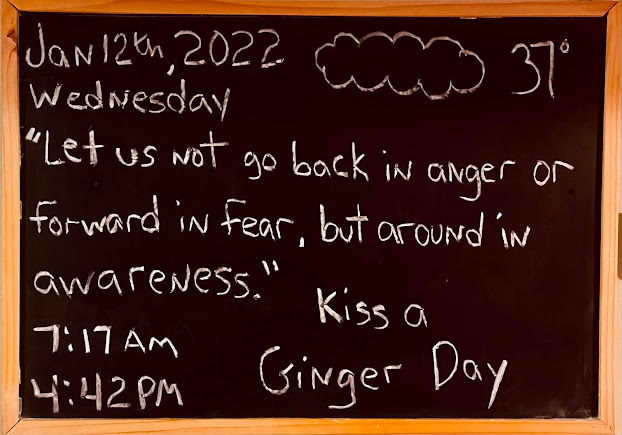 Jan 12th, 2022
37°
Wednesday
"Let us not go back in anger or
forward in fear, but around in
awareness."
Kiss a
7:17 AM
Ginger Day
4:42 PM